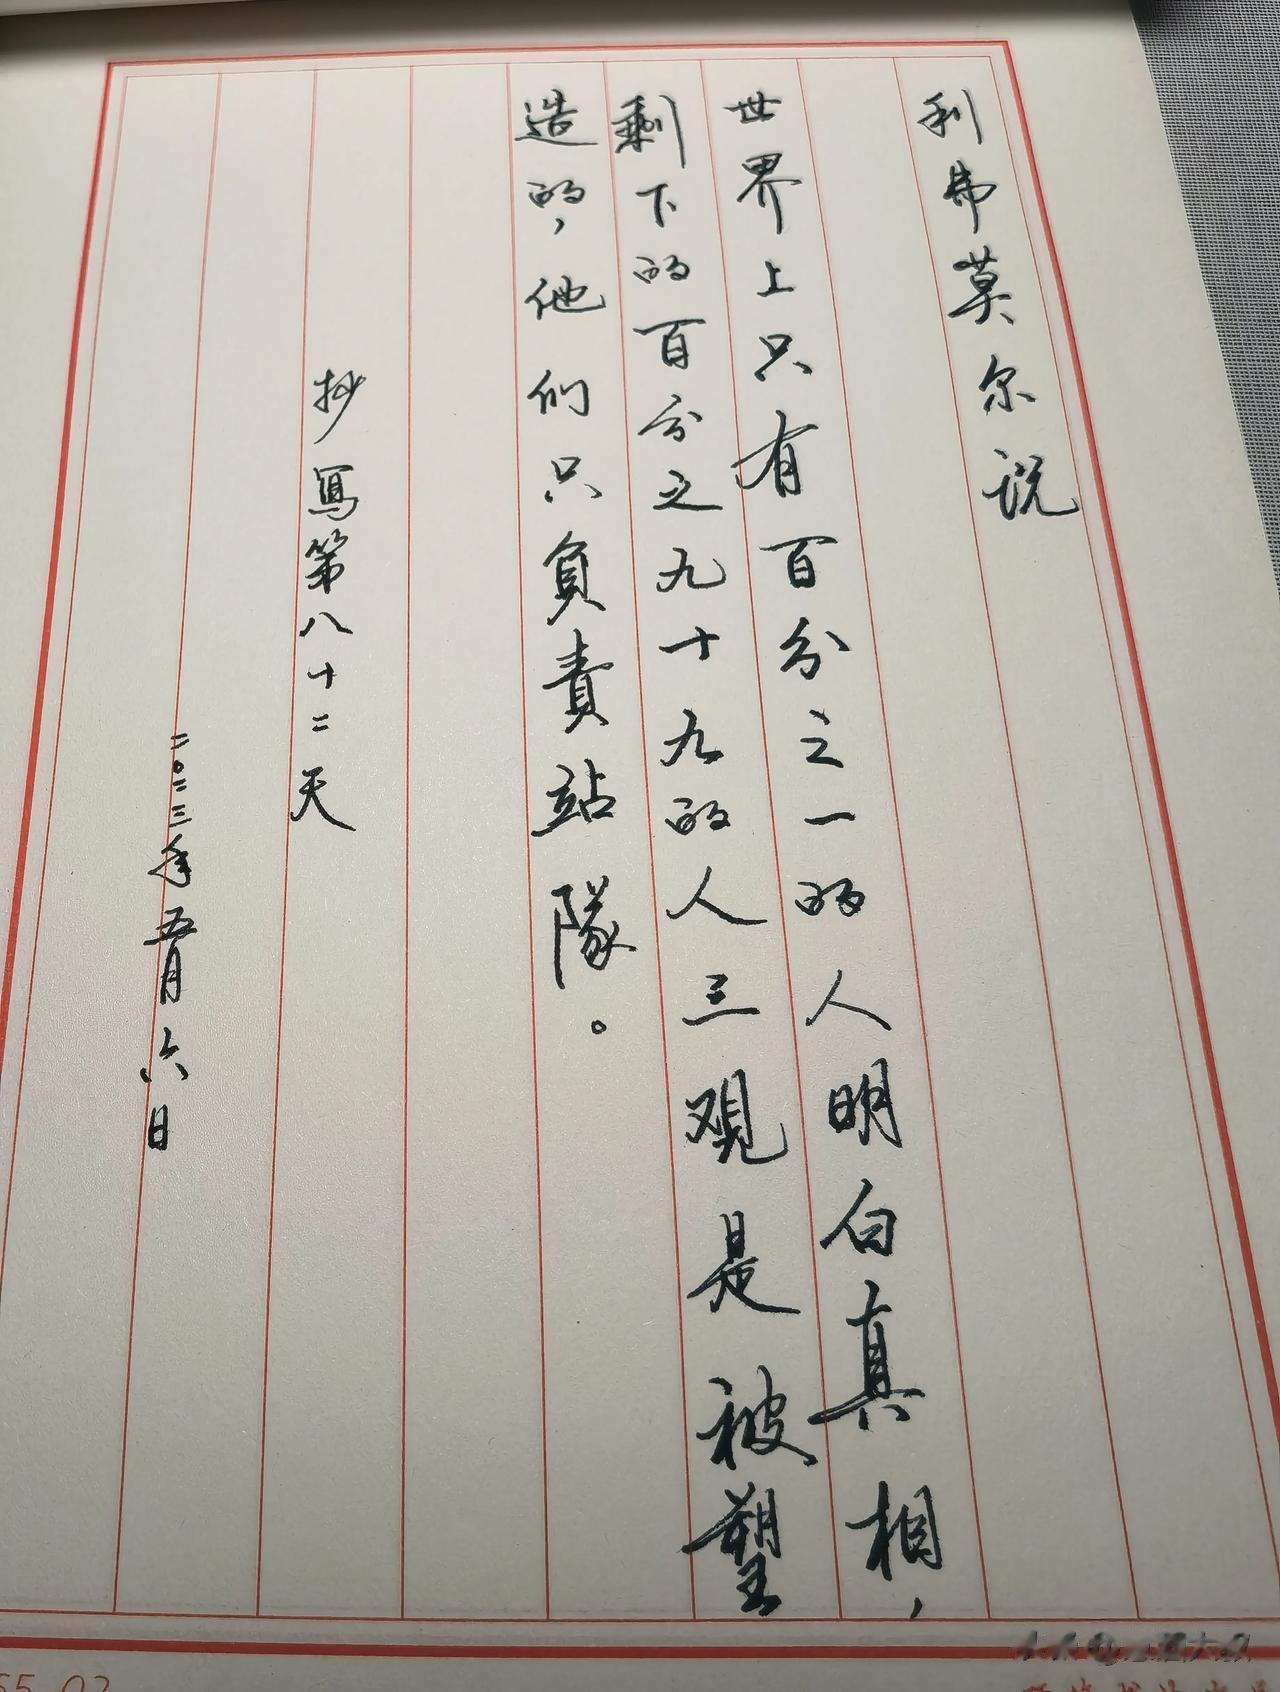 利弗莫尔说
世界上只有百分之一的人明白真相，
剩下的百分之九十九的人三观是被塑
造的，他们只負責站隊。
抄寫第八十二天
二〇二三年五月六日